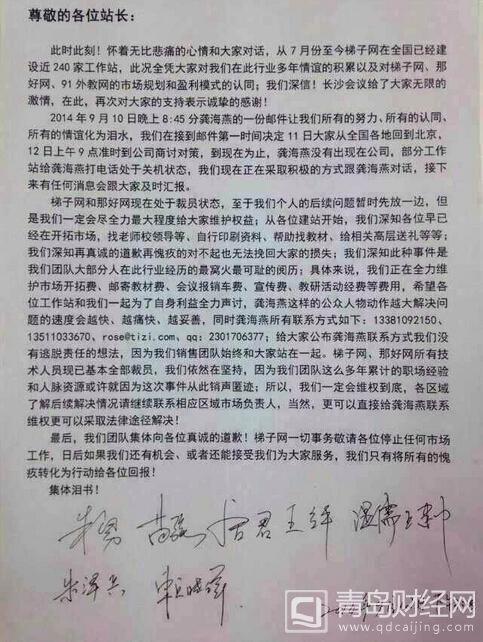 尊敬的各位站长：
此时此刻！怀着无比悲痛的心情和大家对话，从 7 月份至今梯子网在全国已经建
设近 240 家工作站，此况全凭大家对我们在此行业多年情谊的积累以及对梯子网、那
好网、91 外教网的市场规划和盈利模式的认同；我们深信！长沙会议给了大家无限的
激情，在此，再次对大家的支持表示诚挚的感谢！
2014 年 9 月 10 日晚上 8:45 分龚海燕的一份邮件让我们所有的努力、所有的认同、
所有的情谊化为泪水，我们在接到邮件第一时间决定 11 日大家从全国各地回到北京，
12 日上午 9 点准时到公司商讨对策，到现在为止，龚海燕没有出现在公司，部分工作
站给龚海燕打电话处于关机状态，我们现在正在采取积极的方式跟龚海燕对话，接下
来有任何消息会跟大家及时汇报。
梯子网和那好网现在处于裁员状态，至于我们个人的后续问题暂时先放一边，但
是我们一定会尽全力最大程度给大家维护权益；从各位建站开始，我们深知各位早已
经在开拓市场，找老师校领导等、自行印刷资料、帮助找教材、给相关高层送礼等等；
我们深知再真诚的道歉再愧疚的对不起也无法挽回大家的损失；我们深知此种事件是
我们团队大部分人在此行业经历的最窝火最可耻的阅历；具体来说，我们正在全力维
护市场开拓费、邮寄教材费、会议报销车费、宣传费、教研活动经费等费用，希望各
位工作站和我们一起为了自身利益全力声讨，龚海燕这样的公众人物动作越大解决问
题的速度会越快、越痛快、越妥善，同时龚海燕所有联系方式如下：13381092150、
13511033670、rose@tizi.com、qq：2301706377；给大家公布龚海燕联系方式我们没
有逃脱责任的想法，因为我们销售团队始终和大家站在一起。梯子网、那好网所有技
术人员现已基本全部裁员，我们依然在坚持，因为我们团队这么多年累计的职场经验
和人脉资源或许就因为这次事件从此销声匿迹；所以，我们一定会维权到底，各区域
了解后续解决情况请继续联系相应区域市场负责人，当然，更可以直接给龚海燕联系
维权更可以采取法律途径解决！
最后，我们团队集体向各位真诚的道歉！梯子网一切事务敬请各位停止任何市场
工作，日后如果我们还有机会、或者还能接受我们为大家服务，我们只有将所有的愧
疚转化为行动给各位回报！
集体泪书！
青岛财经网
www.qdcaijing.com